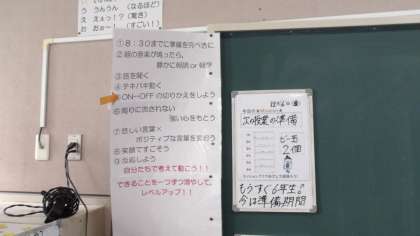 う うんうん (なるほど)
え えぇっ!?(驚き)
お おぉ~! (すごい!)
①8:30までに準備を完ぺきに
②朝の音楽が鳴ったら、
静かに朝読 or 朝学
③話を聞く
④テキパキ動く
⑤ON⇔OFFの切りかえをしよう
⑥周りに流されない
強い心をもとう
⑦悲しい言葉×
ポジティブな言葉を使おう
⑧笑顔ですごそう
⑨反応しよう
自分たちで考えて動こう!!
できることを一つずつ増やして、
レベルアップ!!
次の授業の準備
ビー玉
2個
もうすぐ6年生♪
今は準備期間